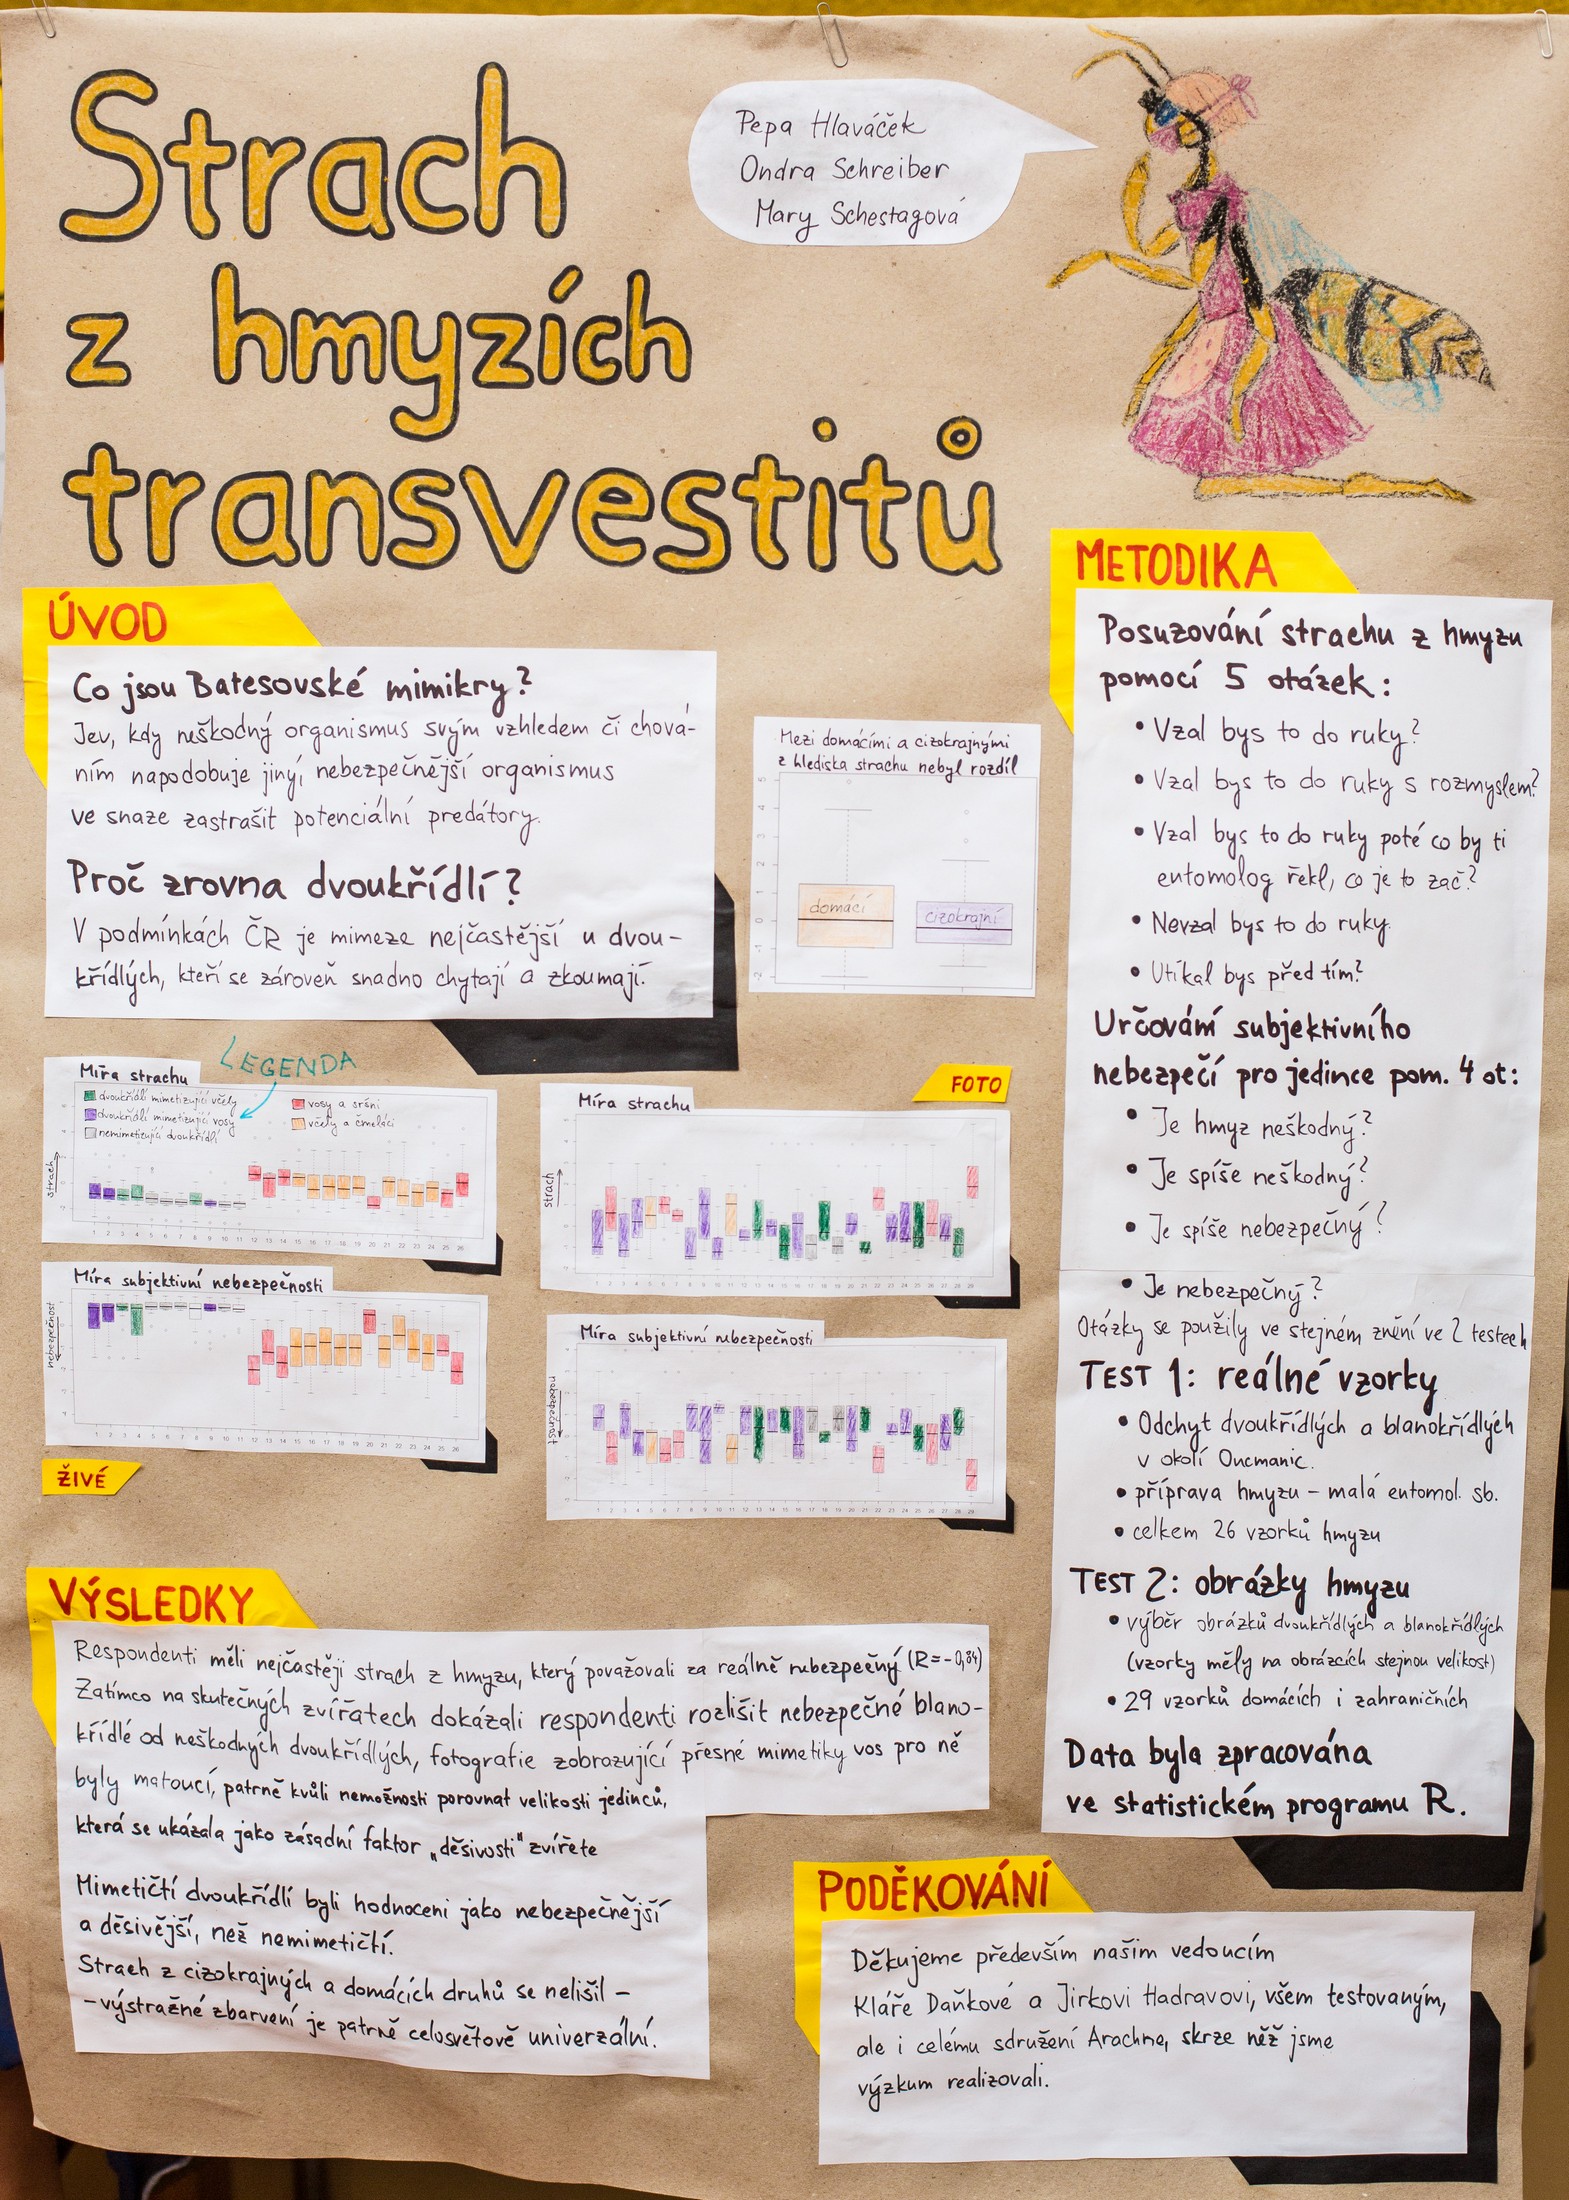 Strach
z hmyzích
transvestitů
Pepa Hlaváček
Ondra Schreiber
Mary Schestagová
ÚVOD
Co jsou Batesovské mimikry?
Jev, kdy neškodný organismus svým vzhledem či chová-
ním napodobuje jiný, nebezpečnější organismus
ve snaze zastrašit potenciální predátory.
Proč zrovna dvoukřídlí?
V podmínkách ČR je mimeze nejčastější u dvou-
křídlých, kteří se zároveň snadno chytají a zkoumají.
Mezi domácími a cizokrajnými
z hlediska strachu nebyl rozdíl
domácí
cizokrajní
LEGENDA
Míra strachu
dvoukřídlí mimetizující včely
dvoukřídlí mimetizující vosy
nemimetizující dvoukřídlí
vosy a sršni
včely a čmeláci
strach
1 2 3 4 5 6 7 8 9 10 11 12 13 14 15 16 17 18 19 20 21 22 23 24 25 26
Míra subjektivní nebezpečnosti
nebezpečnost
1 2 3 4 5 6 7 8 9 10 11 12 13 14 15 16 17 18 19 20 21 22 23 24 25 26
ŽIVÉ
FOTO
Míra strachu
strach
1 2 3 4 5 6 7 8 9 10 11 12 13 14 15 16 17 18 19 20 21 22 23 24 25 26 27 28 29
Míra subjektivní nebezpečnosti
nebezpečnost
1 2 3 4 5 6 7 8 9 10 11 12 13 14 15 16 17 18 19 20 21 22 23 24 25 26 27 28 29
VÝSLEDKY
Respondenti měli nejčastěji strach z hmyzu, který považovali za reálně nebezpečný (R=-0,84)
Zatímco na skutečných zvířatech dokázali respondenti rozlišit nebezpečné blano-
křídlé od neškodných dvoukřídlých, fotografie zobrazující přesné mimetiky vos pro ně
byly matoucí, patrně kvůli nemožnosti porovnat velikosti jedinců,
která se ukázala jako zásadní faktor „děsivosti" zvířete
Mimetičtí dvoukřídlí byli hodnoceni jako nebezpečnější
a děsivější, než nemimetičtí.
Strach z cizokrajných a domácích druhů se nelišil -
- výstražné zbarvení je patrně celosvětově univerzální.
METODIKA
Posuzování strachu z hmyzu
pomocí 5 otázek:
• Vzal bys to do ruky?
• Vzal bys to do ruky s rozmyslem?
• Vzal bys to do ruky poté co by ti
entomolog řekl, co je to zač?
• Nevzal bys to do ruky.
• Utíkal bys před tím?
Určování subjektivního
nebezpečí pro jedince pom. 4 ot:
• Je hmyz neškodný?
• Je spíše neškodný?
• Je spíše nebezpečný?
• Je nebezpečný?
Otázky se použily ve stejném znění ve 2 testech
TEST 1: reálné vzorky
• Odchyt dvoukřídlých a blanokřídlých
v okolí Oucmanic.
• příprava hmyzu - malá entomol. sb.
• celkem 26 vzorků hmyzu
TEST 2: obrázky hmyzu
• výběr obrázků dvoukřídlých a blanokřídlých
(vzorky měly na obrázcích stejnou velikost)
• 29 vzorků domácích i zahraničních
Data byla zpracována
ve statistickém programu R.
PODĚKOVÁNÍ
Děkujeme především našim vedoucím
Kláře Daňkové a Jirkovi Hadravovi, všem testovaným,
ale i celému sdružení Arachne, skrze něž jsme
výzkum realizovali.